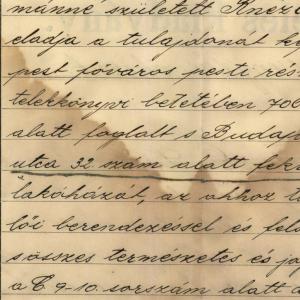 mánné született Knez
eladja a tulajdonát ké
pest főváros pesti rés
telekkönyvi betétében 700
alatt foglalt s Budap
utca 32 szám alatt fek
lakóházát, az ahhoz t
lői berendezéssel és fel
sösszes természetes és jo
a C 9-10. sorszám alatt